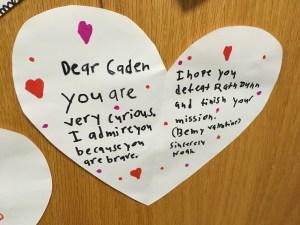 Dear Caden
you are
very curious.
I admire you
because you
are brave.
I hope you
defeat Rath Dunn
and finish your
mission.
(Be my valentine?
Sincerely
Noah